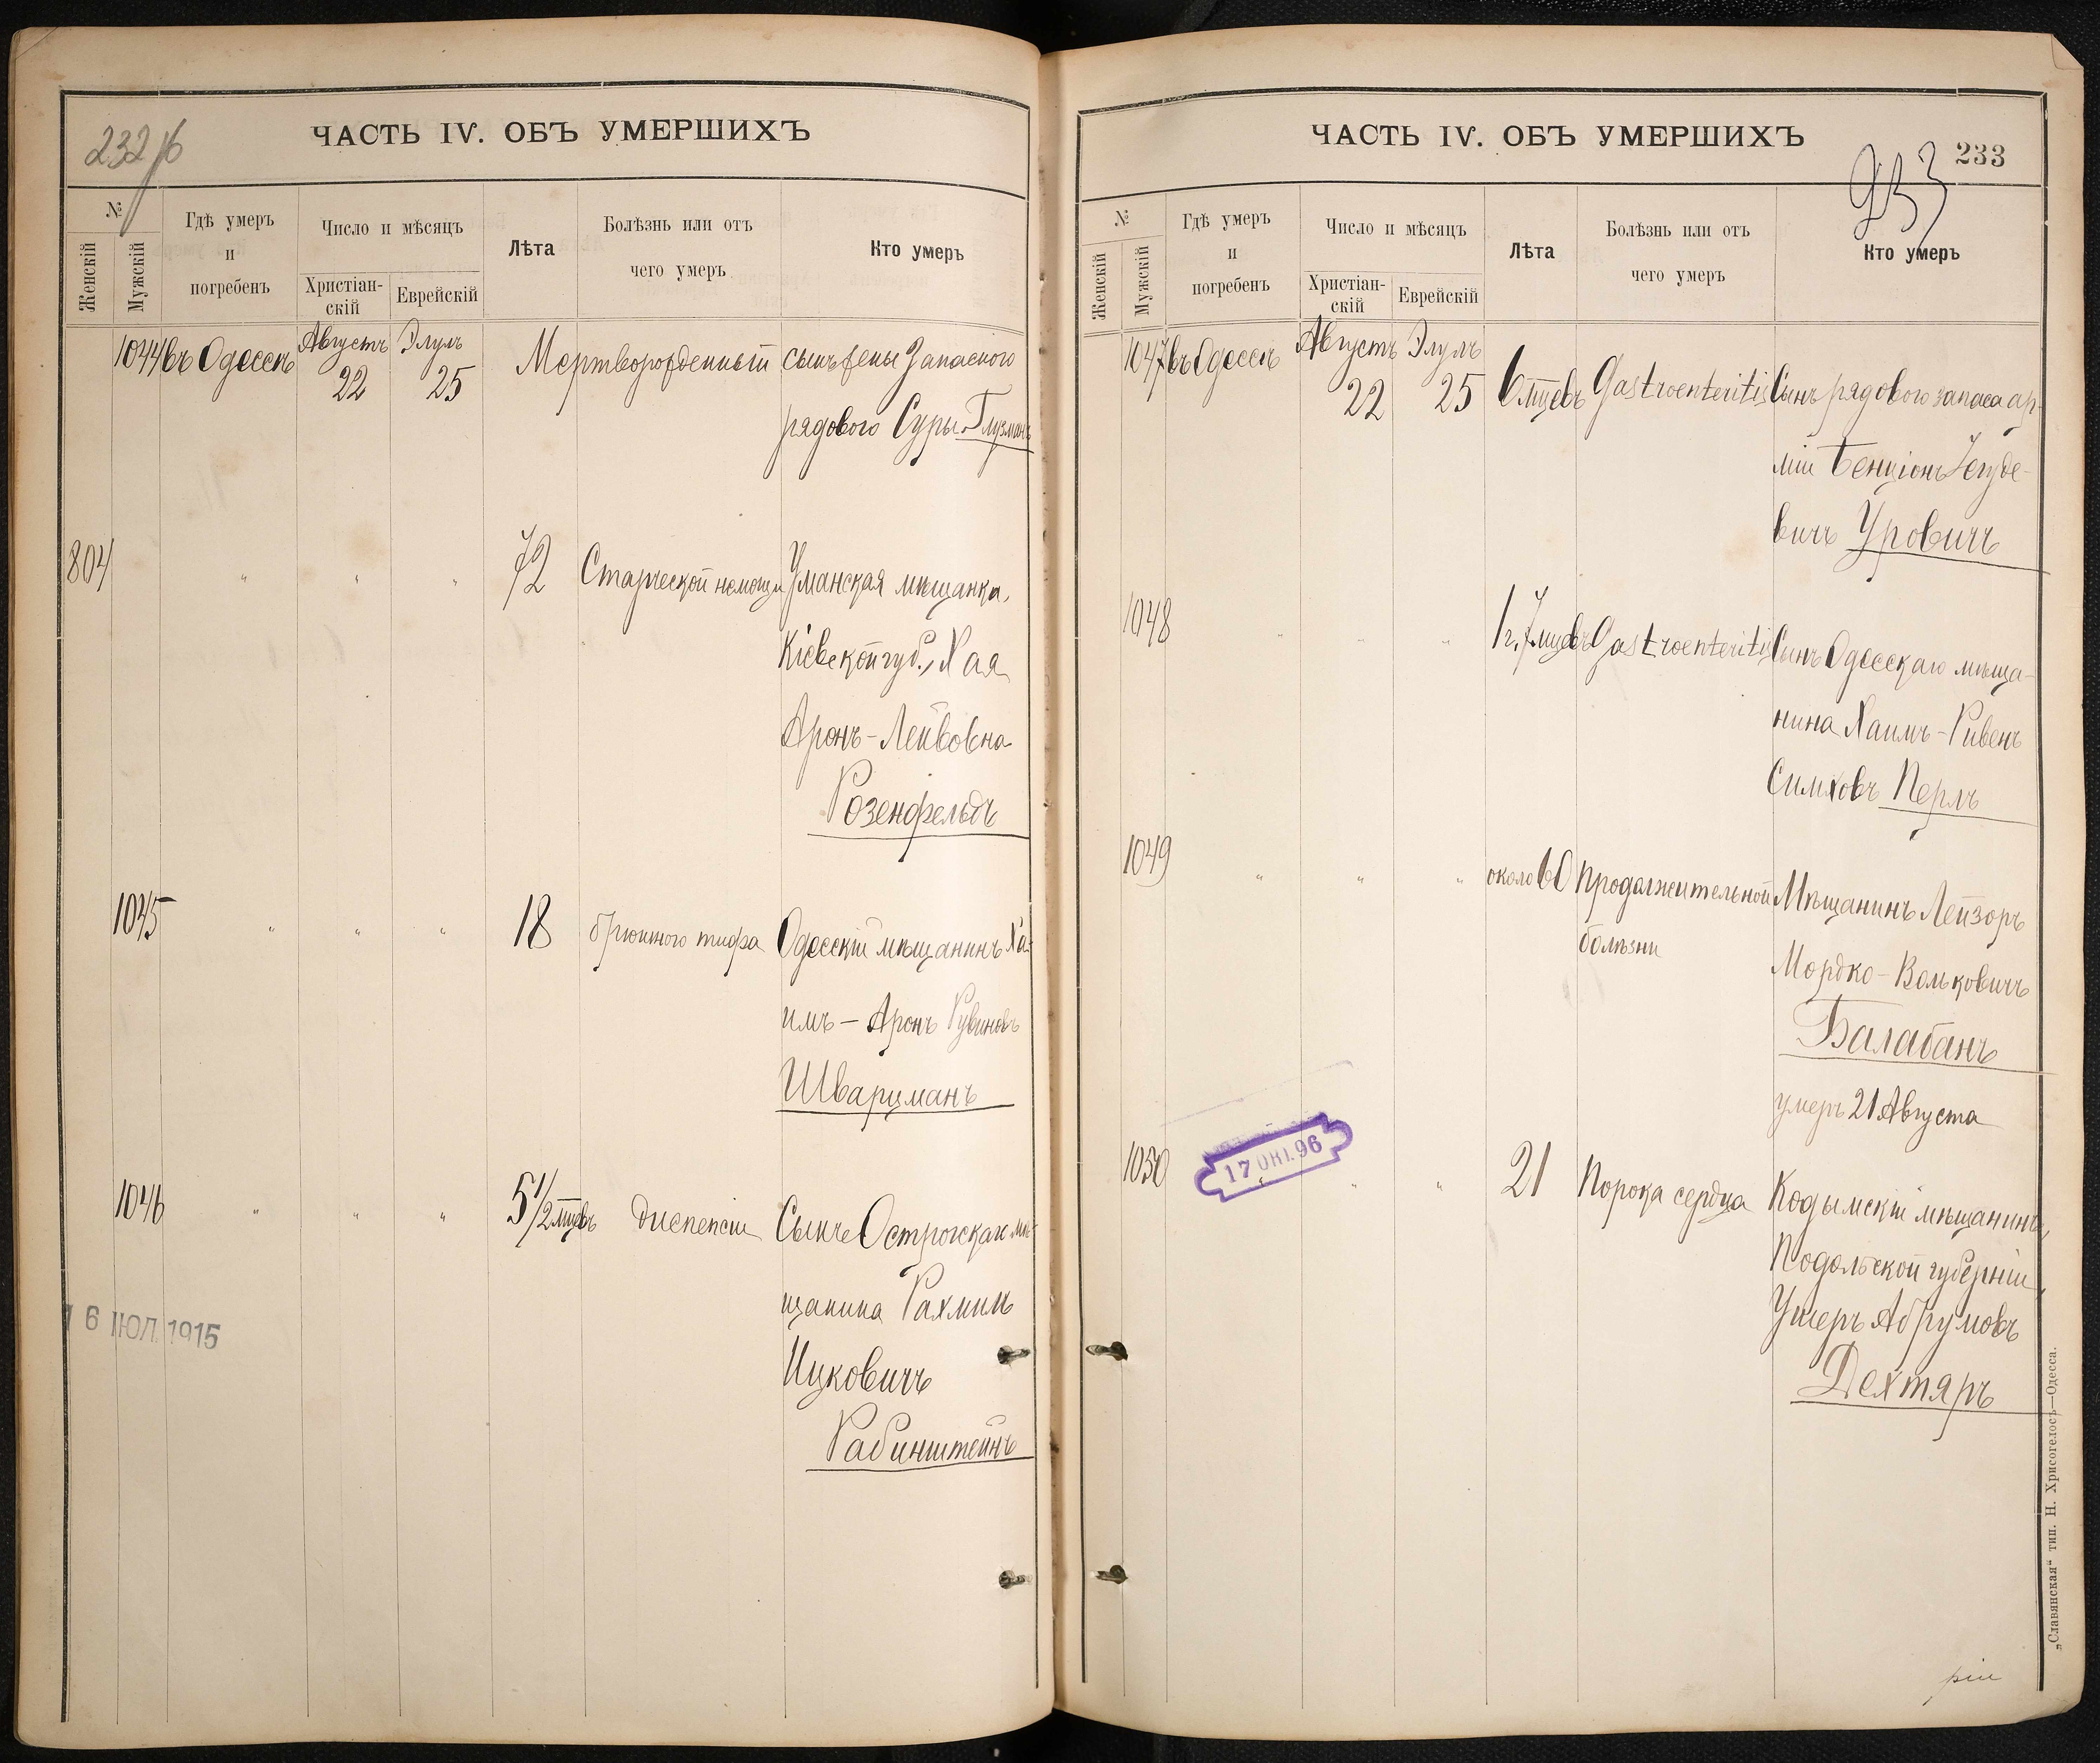 232 об
ЧАСТЬ IV. ОБЪ УМЕРШИХЪ
№
Женскій
Мужскій
Гдѣ умеръ
и
погребенъ
Число и мѣсяцъ
Христіан-
скій
Еврейскій
Лѣта
Болѣзнь или отъ
чего умеръ
Кто умеръ
1044 въ Одессѣ Августъ 22 Элулъ 25 Мертворожденный сынъ жены Запасного
рядового Суры Глузманъ
804 " " " 72 Старческой немощи Уманская мѣщанка,
Кіевской губ., Хая
Аронъ-Лейвовна
Розенфельдъ
1045 " " " 18 брюшного тифа Одесскій мѣщанинъ Ха-
имъ - Аронъ Рувиновъ
Шварцманъ
1046 " " " 5 1/2 мцевъ диспепсіи Сынъ Острогскаго мѣ-
щанина Рахмиль
Ицковичъ
Рабинштейнъ
16 ІЮЛ 1915
ЧАСТЬ IV. ОБЪ УМЕРШИХЪ
233
233
№
Женскій
Мужскій
Гдѣ умеръ
и
погребенъ
Число и мѣсяцъ
Христіан-
скій
Еврейскій
Лѣта
Болѣзнь или отъ
чего умеръ
Кто умеръ
1047 въ Одессѣ Августъ 22 Элулъ 25 6 мцевъ Gastroenteritis Сынъ рядового запаса ар-
міи Бенціонъ Іегуде-
вичъ Уровичъ
1048 " " " 1 г. 7 мцевъ Gastroenteritis Сынъ Одесскаго мѣща-
нина Хаимъ-Ривенъ
Симховъ Перлъ
1049 " " " около 60 Продолжительной Мѣщанинъ Лейзоръ
болѣзни
Мордко-Вольковичъ
Балабанъ
умеръ 21 Августа
1050 " " " 21 Порока сердца Кодымскій мѣщанинъ,
17 ОКТ. 96
Подольской губерніи,
Ушеръ Абрумовъ
Дехтяръ
„Славянская“ тип. Н. Хрисогелосъ—Одесса.